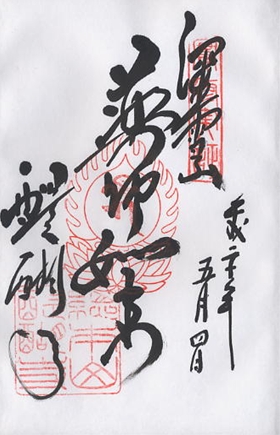 深雪山
平成二十年
五月四日
薬師如来
醍醐寺